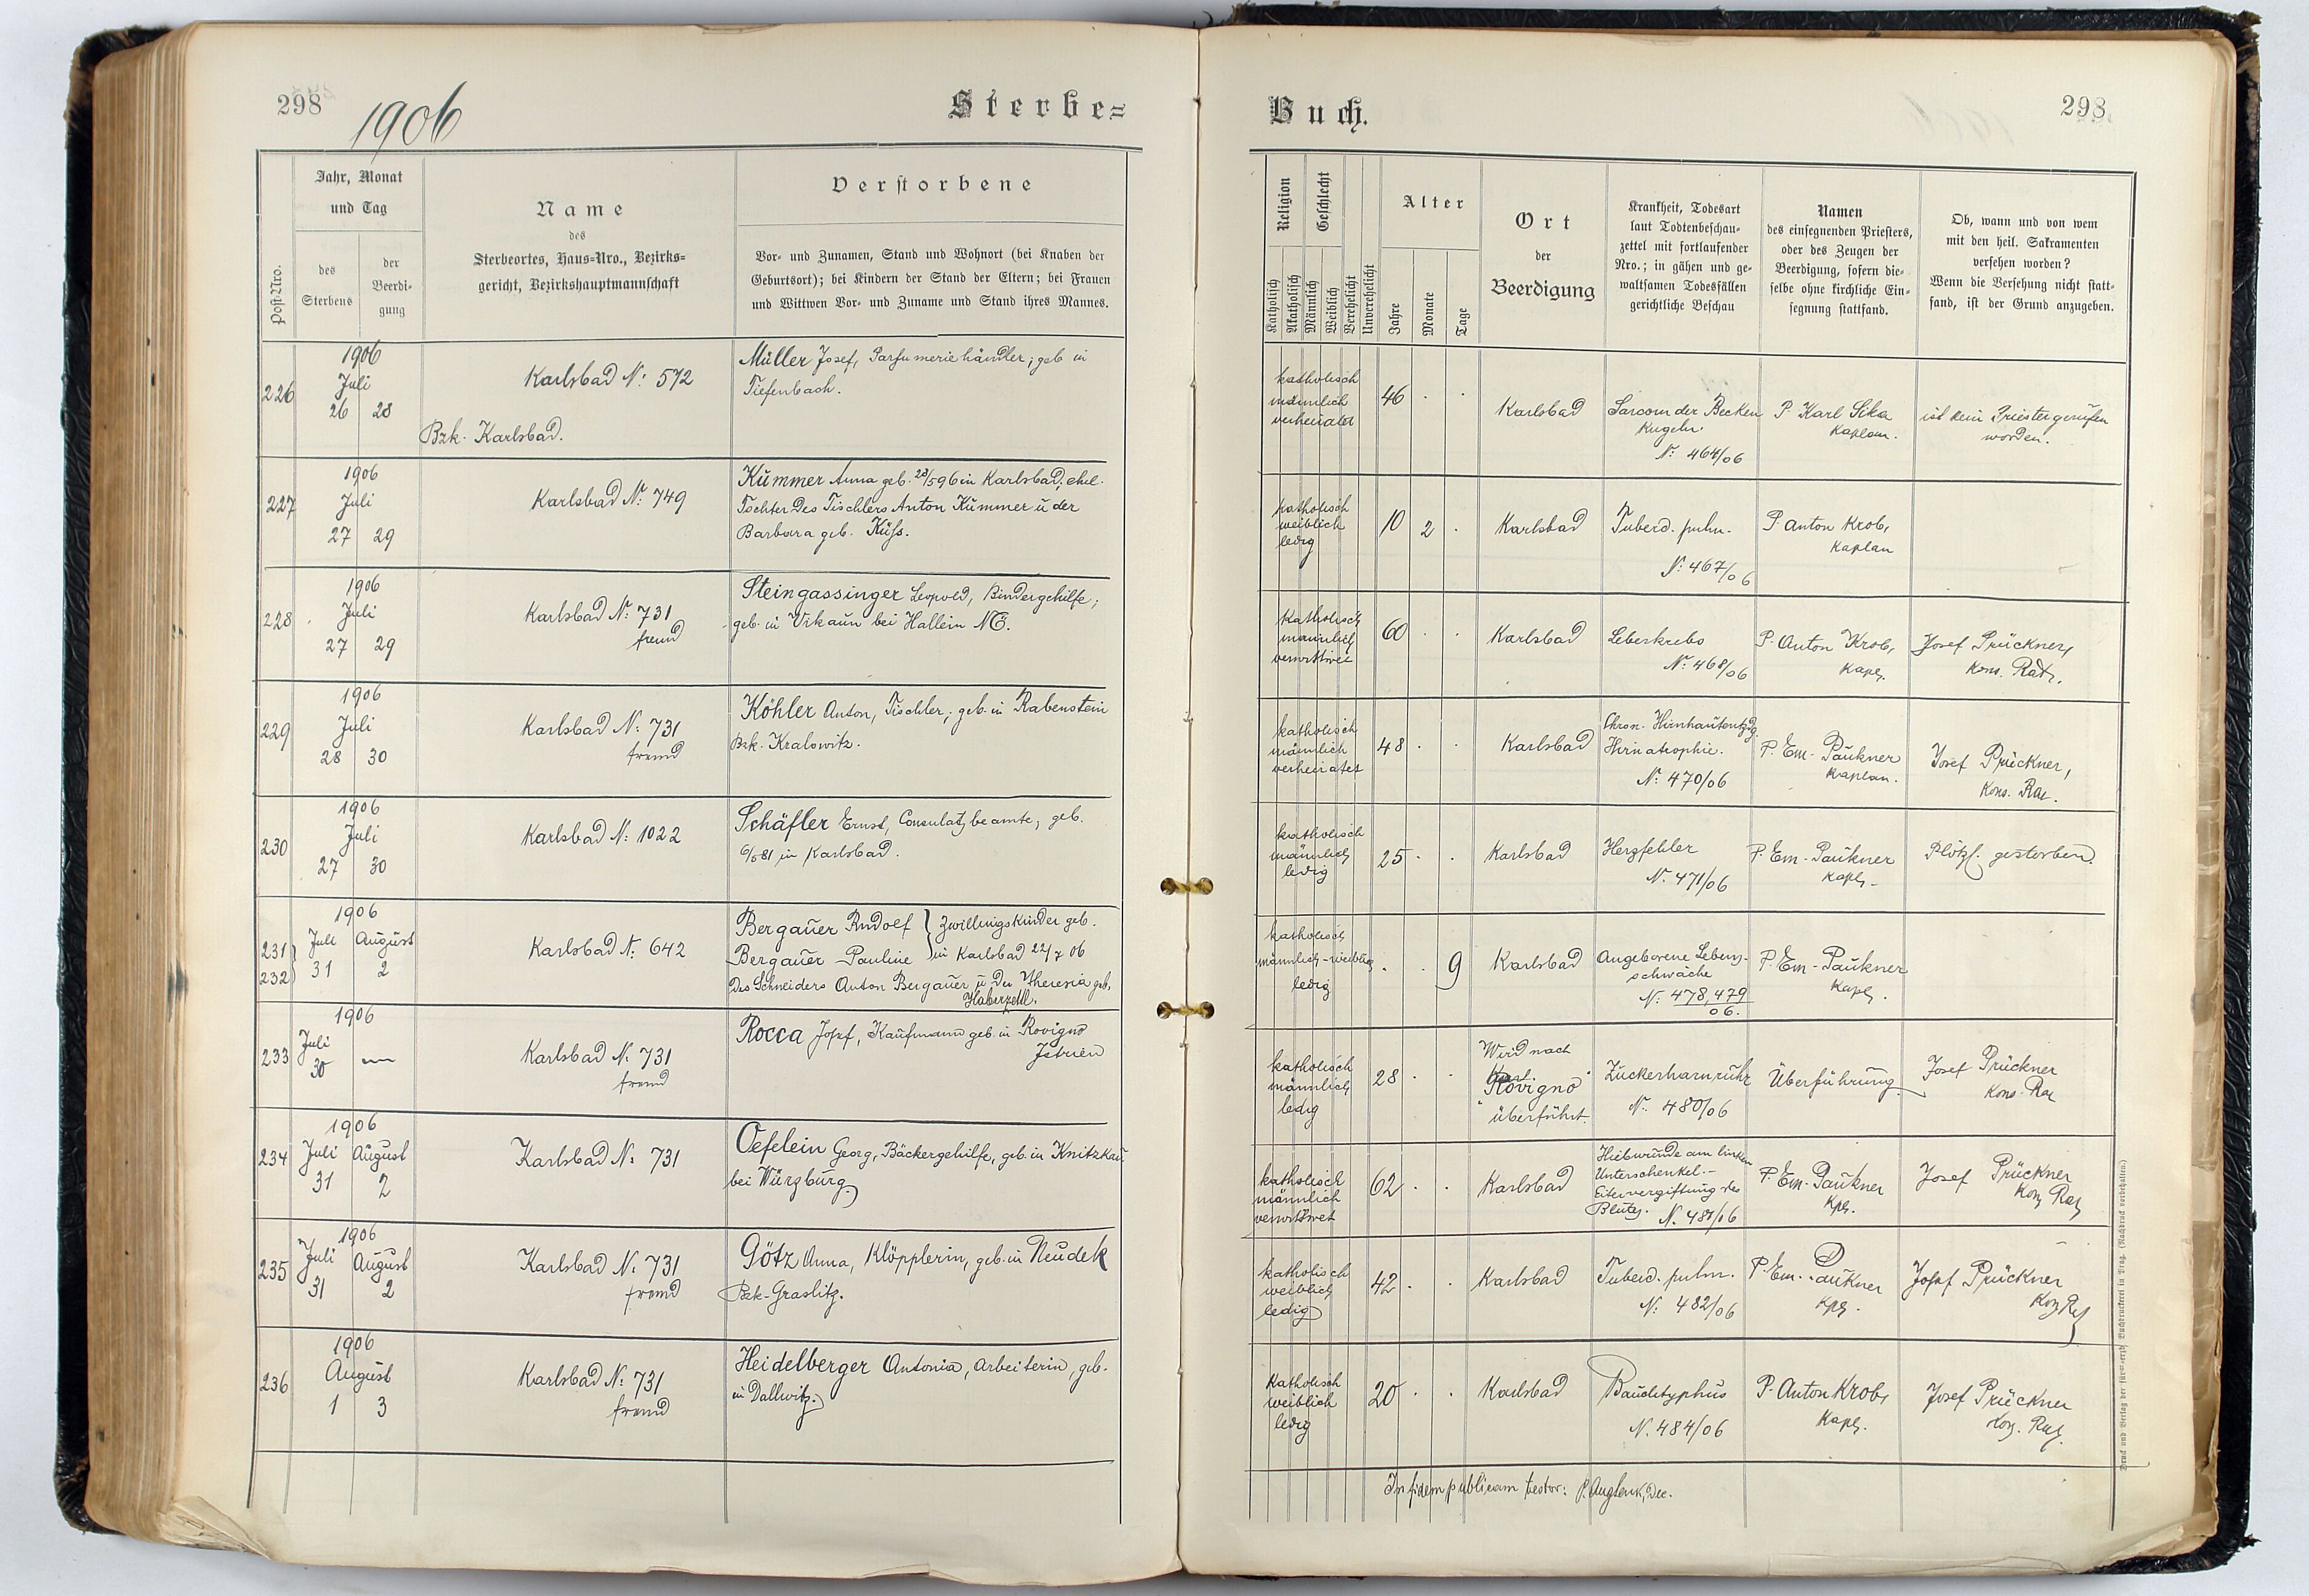 298
1906
Sterbe=
Jahr, Monat
und Tag
Post-Nro.
des
Sterbens
der
Beerdi-
gung
Name
des
Sterbeortes, Haus-Nro., Bezirks-
gericht, Bezirkshauptmannschaft
Verstorbene
Vor- und Zunamen, Stand und Wohnort (bei Knaben der
Geburtsort); bei Kindern der Stand der Eltern; bei Frauen
und Wittwen Vor- und Zuname und Stand ihres Mannes.
226
1906
Juli
26 28
Karlsbad N: 572
Bzk. Karlsbad.
Müller Josef, Parfumeriehändler; geb in
Tiefenbach.
227
1906
Juli
27 29
Karlsbad N: 749
Kummer Anna geb. 28/5 96 in Karlsbad, ehel.
Tochter des Tischlers Anton Kummer u der
Barbara geb. Küss.
228
1906
Juli
27 29
Karlsbad N: 731
fremd
Steingassinger Leopold, Bindergehilfe;
geb. in Vikaun bei Hallein NÖ.
229
1906
Juli
28 30
Karlsbad N: 731
fremd
Köhler Anton, Tischler; geb. in Rabenstein
Bzk. Kralowitz.
230
1906
Juli
27 30
Karlsbad N: 1022
Schäfler Ernst, Consulatsbeamte, geb.
6/5 81 in Karlsbad.
231
232
1906
Juli August
31 2
Karlsbad N: 642
Bergauer Rudolf } Zwillingskinder geb.
Bergauer Pauline } in Karlsbad 22/7 06
des Schneiders Anton Bergauer u der Theresia geb.
Haberzettl.
233
1906
Juli
30 —
Karlsbad N: 731
fremd
Rocca Josef, Kaufmann geb. in Rovigno
Istrien
234
1906
Juli August
31 2
Karlsbad N: 731
Oefelein Georg, Bäckergehilfe, geb. in Knitzkau
bei Würzburg.
235
1906
Juli August
31 2
Karlsbad N: 731
fremd
Götz Anna, Klöpplerin, geb. in Neudek
Bzk. Graslitz.
236
1906
August
1 3
Karlsbad N: 731
fremd
Heidelberger Antonia, Arbeiterin, geb.
in Dallwitz.
Buch.
298
Religion
Geschlecht
Katholisch
Akatholisch
Männlich
Weiblich
Verehelicht
Unverehelicht
Alter
Jahre
Monate
Tage
Ort
der
Beerdigung
Krankheit, Todesart
laut Todtenbeschau-
zettel mit fortlaufender
Nro.; in gähen und ge-
waltsamen Todesfällen
gerichtliche Beschau
Namen
des einsegnenden Priesters,
oder des Zeugen der
Beerdigung, sofern die-
selbe ohne kirchliche Ein-
segnung stattfand.
Ob, wann und von wem
mit den heil. Sakramenten
versehen worden?
Wenn die Versehung nicht statt-
fand, ist der Grund anzugeben.
katholisch
männlich
verheiratet
46
Karlsbad
Sarcom der Becken
Kugeln
N: 464/06
P Karl Sika
Kaplan.
ist kein Priester gerufen
worden.
katholisch
weiblich
ledig
10 2
Karlsbad
Tuberc. pulm.
N: 467/06
P. Anton Krob,
Kaplan
katholisch
männlich
verwittwet
60
Karlsbad
Leberkrebs
N: 468/06
P. Anton Krob,
Kapl.
Josef Prückner,
Kons. Rat.
katholisch
männlich
verheiratet
48
Karlsbad
Chron. Hirnhautentzdg.
Hirnatrophie.
N: 470/06
P. Em. Paukner
Kaplan.
Josef Prückner,
Kons. Rat.
katholisch
männlich
ledig
25
Karlsbad
Herzfehler
N. 471/06
P. Em. Paukner
Kapl.
Plötzl. gestorben.
katholisch
männlich-weiblich
ledig
9
Karlsbad
Angeborene Lebens-
schwäche
N: 478,479
06.
P. Em. Paukner
Kapl.
katholisch
männlich
ledig
28
Wird nach
Rovigno
überführt.
Zuckerharnruhr
N: 480/06
Überführung
Josef Prückner
Kons. Rat
katholisch
männlich
verwittwet
62
Karlsbad
Hiebwunde am linken
Unterschenkel:-
Eitervergiftung des
Blutes. N. 481/06
P. Em. Paukner
Kpl.
Josef Prückner
Kons Rat
katholisch
weiblich
ledig
42
Karlsbad
Tuberc. pulm.
N: 482/06
P. Em. Paukner
Kpl.
Josef Prückner
Kons Rat
katholisch
weiblich
ledig
20
Karlsbad
Bauchtyphus
N. 484/06
P. Anton Krob,
Kapl.
Josef Prückner
Kons. Rat.
In fidem publicam testor:
Druck und Verlag der fürst-erzb. Buchdruckerei in Prag. (Nachdruck vorbehalten.)